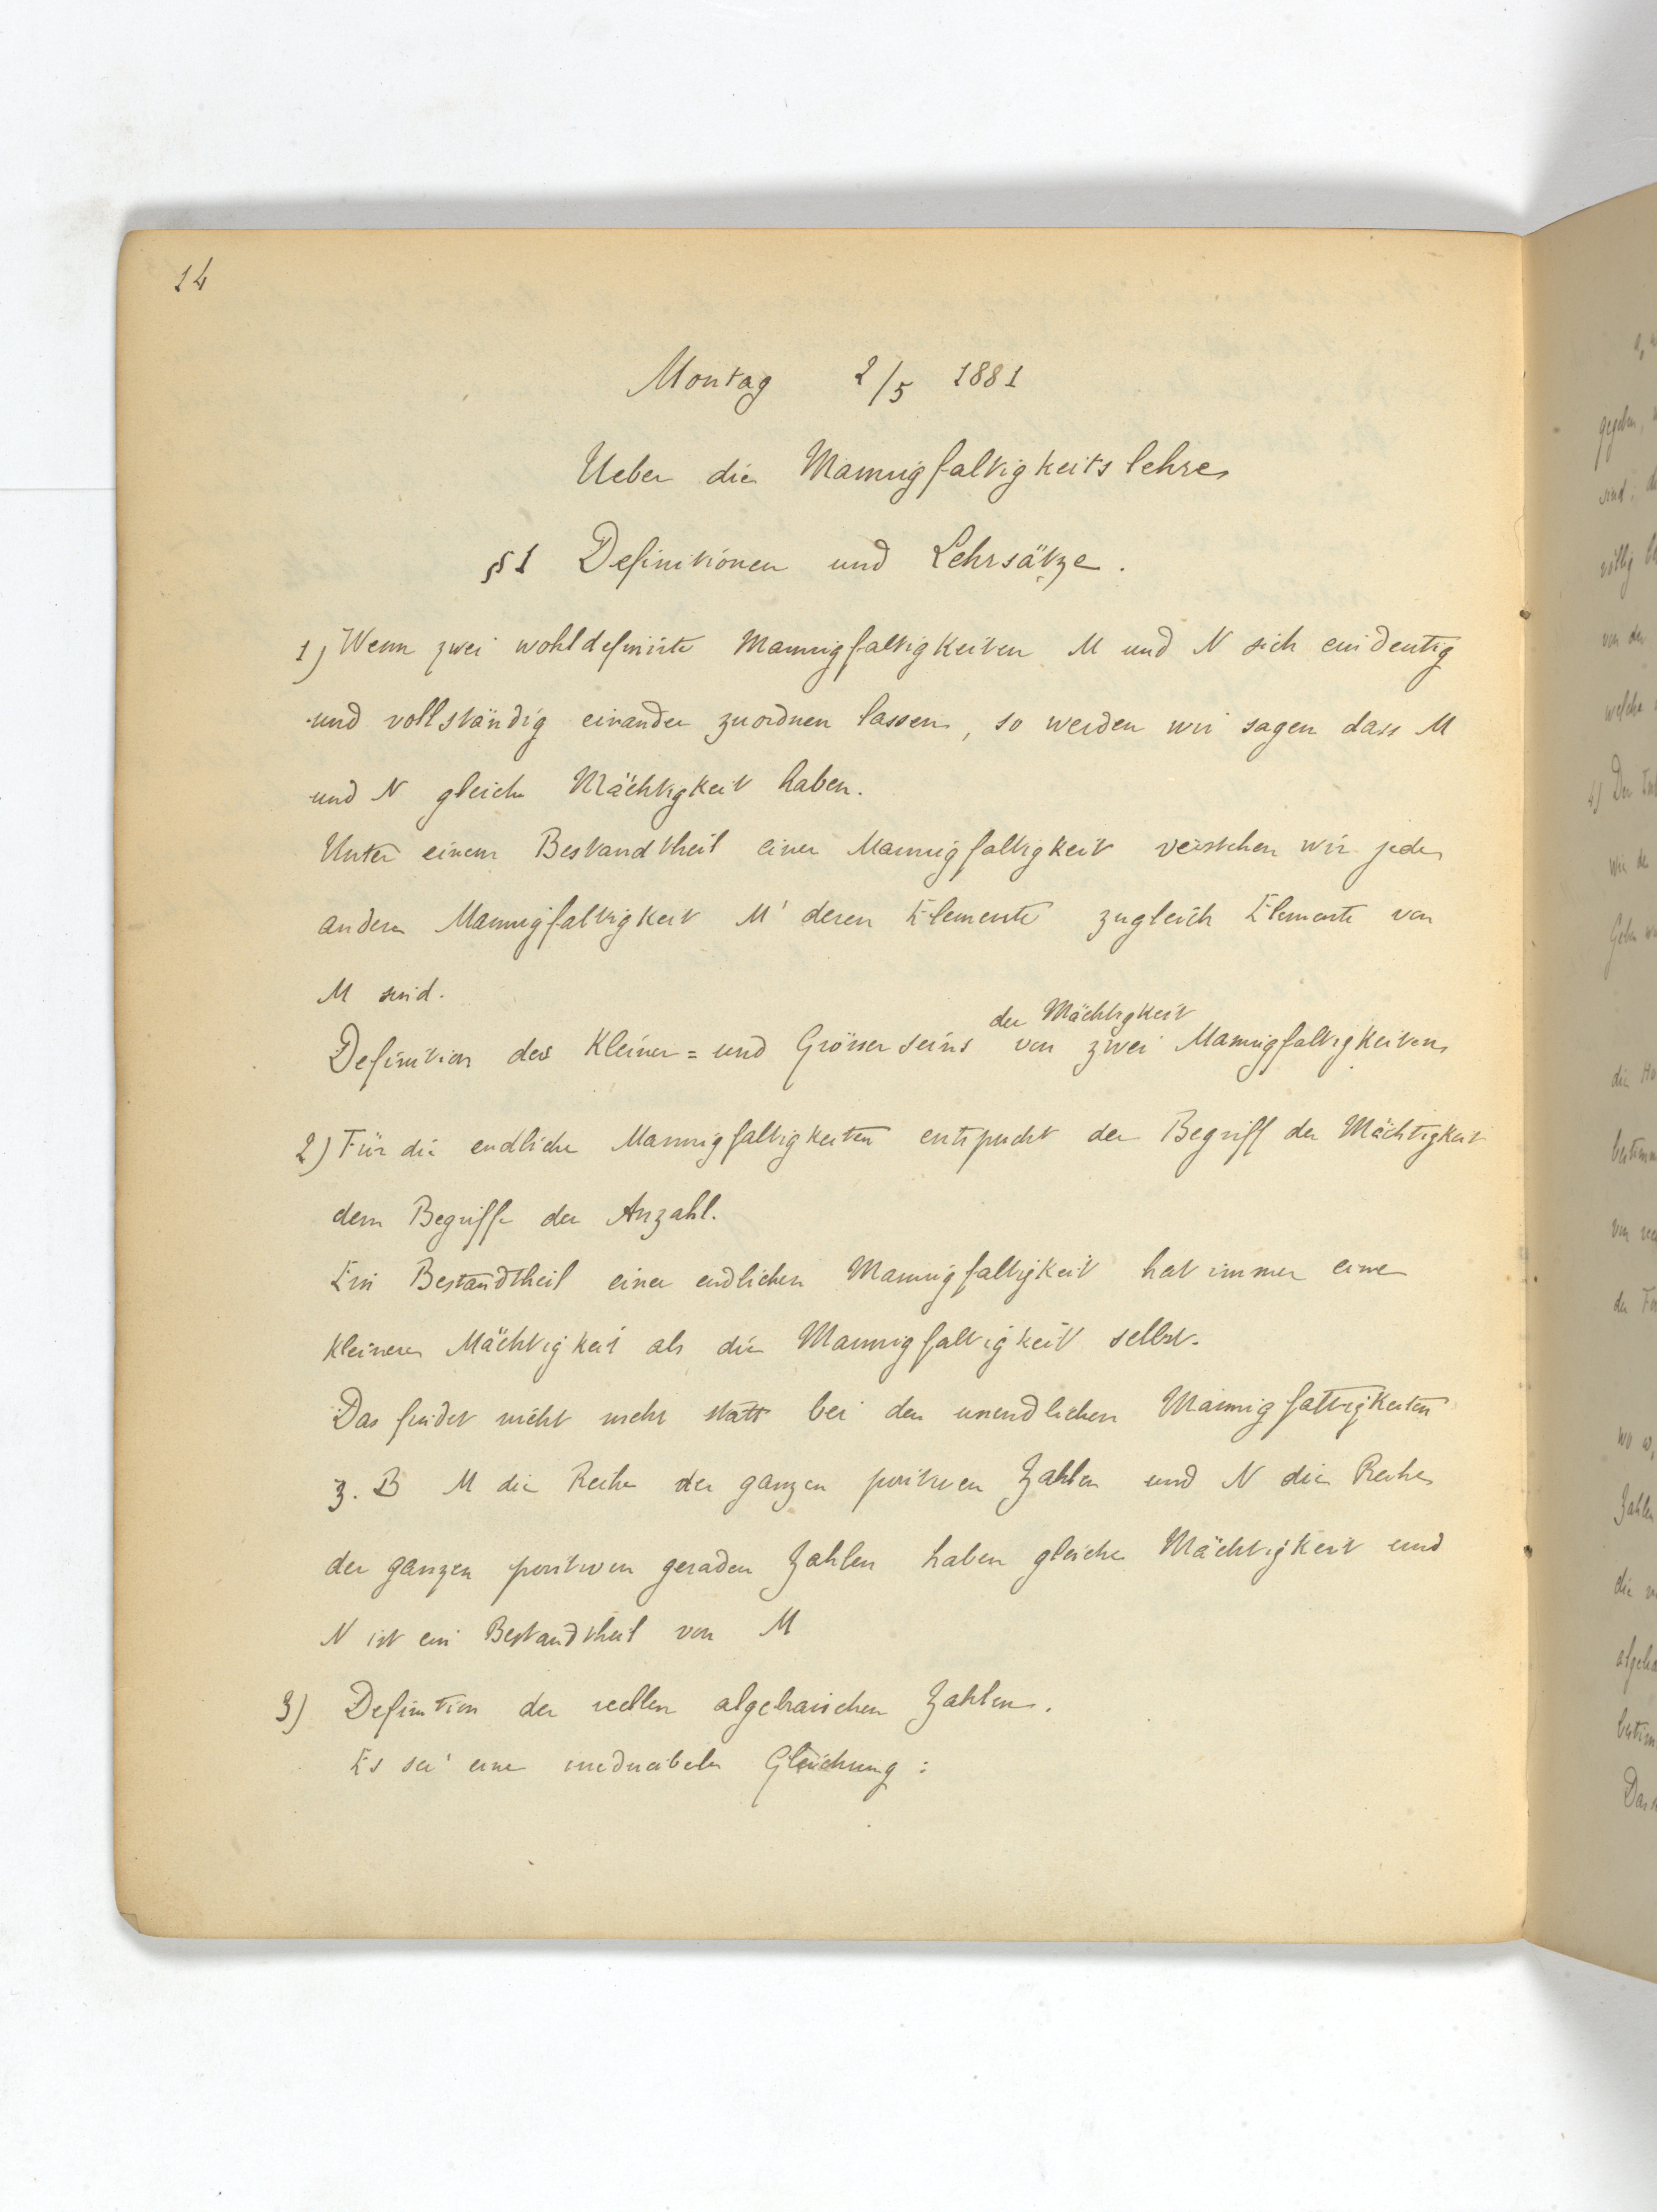 14
Montag 2/5 1881
Ueber die Mannigfaltigkeitslehre
§1 Definitionen und Lehrsätze.
1) Wenn zwei wohldefinirte Mannigfaltigkeiten M und N sich eindeutig
und vollständig einander zuordnen lassen, so werden wir sagen dass M
und N gleiche Mächtigkeit haben.
Unter einem Bestandtheil einer Mannigfaltigkeit verstehen wir jede
andere Mannigfaltigkeit M' deren Elemente zugleich Elemente von
M sind.
der Mächtigkeit
Definition des Kleiner= und Grösser seins von zwei Mannigfaltigkeiten
2) Für die endliche Mannigfaltigkeiten entspricht der Begriff der Mächtigkeit
dem Begriffe der Anzahl.
Ein Bestandtheil einer endlichen Mannigfaltigkeit hat immer eine
kleinere Mächtigkeit als die Mannigfaltigkeit selbst.
Das findet nicht mehr statt bei den unendlichen Mannigfaltigkeiten
z. B M die Reihe der ganzen positiven Zahlen und N die Reihe
der ganzen positiven geraden Zahlen haben gleiche Mächtigkeit und
N ist ein Bestandtheil von M
3) Definition der reellen algebraischen Zahlen.
Es sei eine irreducibele Gleichung: